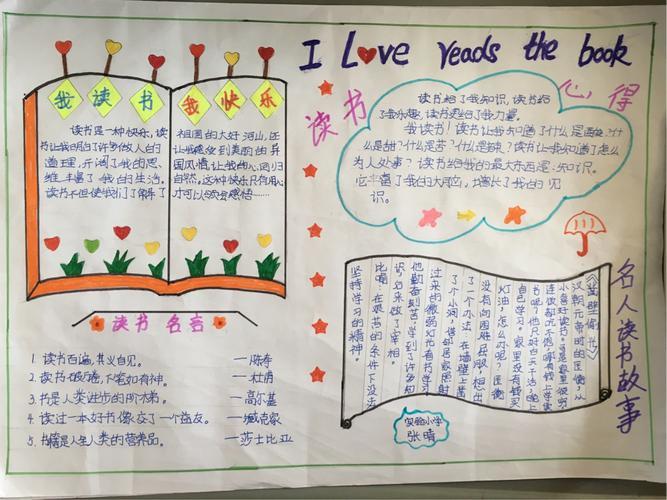 I Love reads the book
我读书 我快乐
读书是一种快乐,读
书让我明白了许多做人的
道理,开阔了我的思
维,丰富了我的生活。
读书不但使我们了解了
祖国的大好河山,还
让我感受到美丽的异
国风情,让我的心回归
自然。这种快乐只有用心
才可以领会感悟……
读书心得
读书给了我知识,读书给
了我乐趣,读书更给了我力量。
我读书!读书让我知道了什么是酒,什
么是甜?什么是苦?什么是辣?读书让我知道了怎么
为人处事?读书给我的最大东西是:知识。
它丰富了我的大脑,增长了我的见
识。
读书名言
1. 读书百遍,其义自见。 —陈寿
2. 读书破万卷,下笔如有神。 —杜甫
3. 书是人类进步的阶梯。 —高尔基
4. 读过一本好书,像交了一个益友。 —臧克家
5. 书籍是人类的营养品。 —莎士比亚
名人读书故事
《凿壁偷光》
汉朝元帝时的匡衡,从
小喜好读书。可是家里很穷,
连饭都吃不饱,哪有钱上学读
书呢?他只好白天干活,晚上
自己学习。家里没有钱买
灯油,怎么办呢?匡衡
没有向困难屈服,想出
了一个办法,在墙壁上凿
了个小洞,借邻居家照射
过来的微弱灯光看书学习。
他勤奋刻苦,学到了许多知
识,后来做了宰相。
比喻:在艰苦的条件下没法
坚持学习的精神。
实验小学
张晴